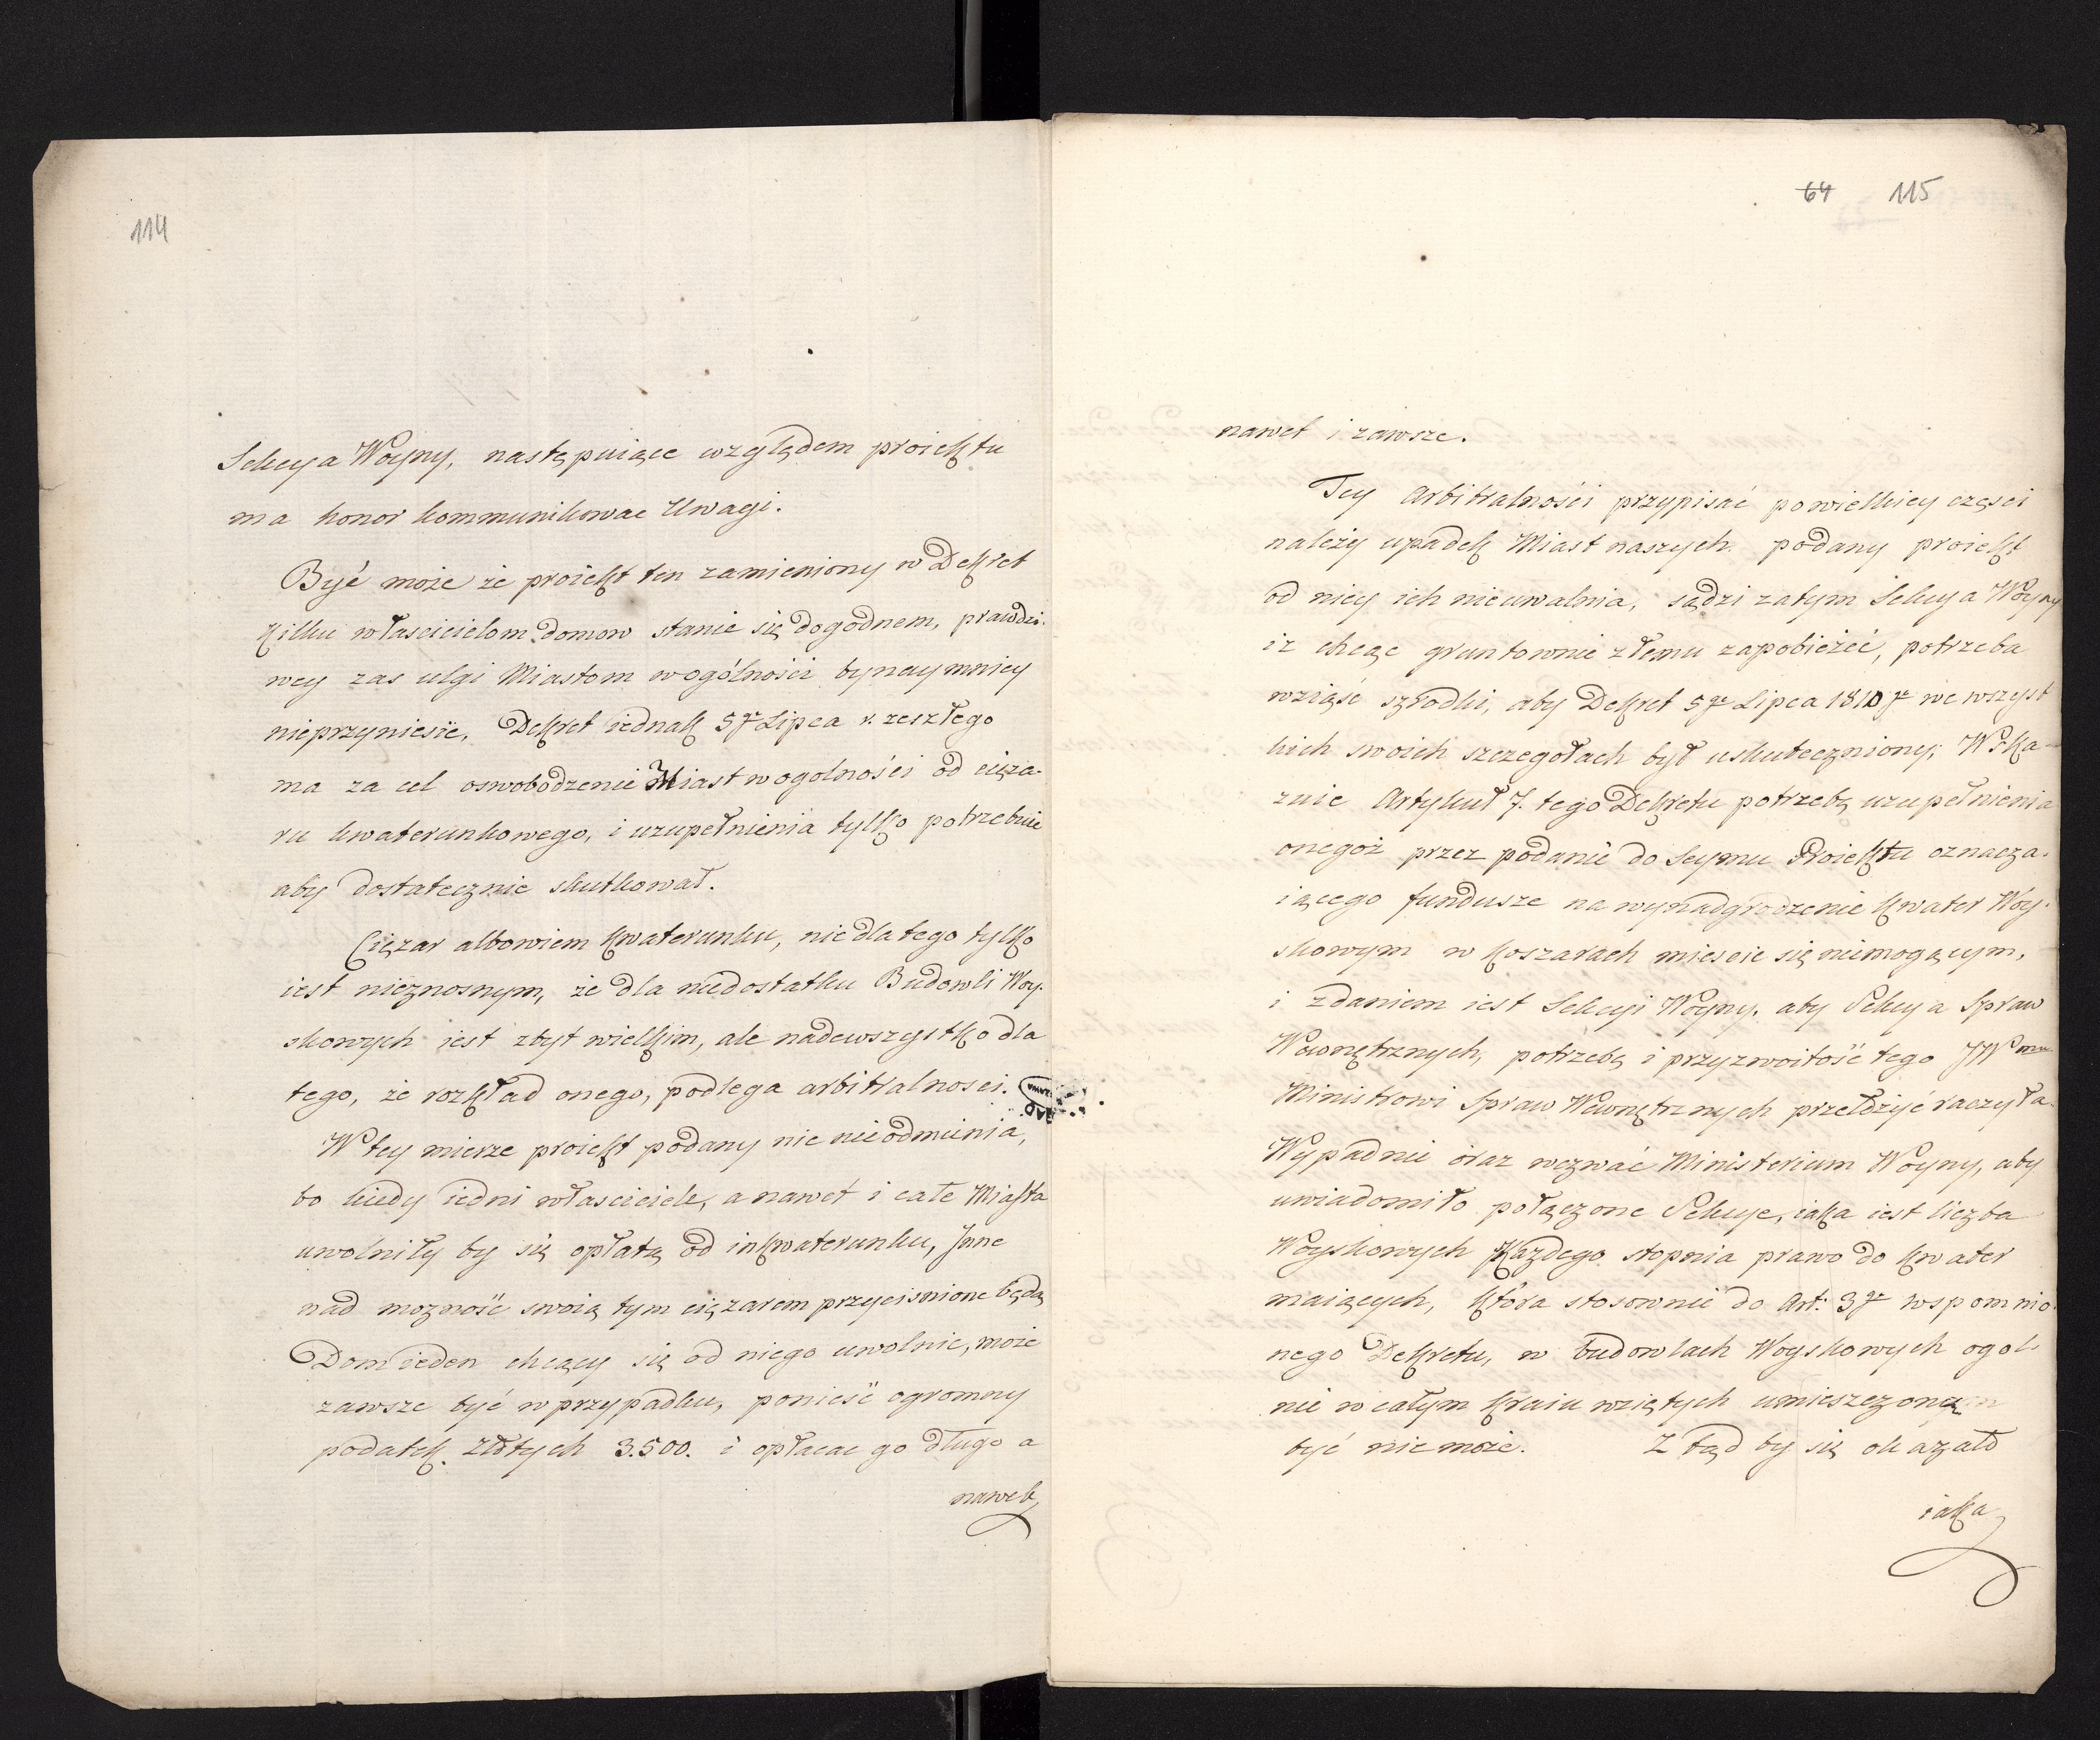 114
Sekcya Woyny, następuiące względem proiektu
ma honor kommunikowac Uwagi.
Być może że proiekt ten zamieniony w Dekret
kilku włascicielom domow stanie się dogodnem, prawdzi-
wey zas ulgi Miastom w ogólności bynaymniey
nieprzyniesie. Dekret iednak 5go Lipca r. zeszłego
ma za cel oswobodzenie Miast w ogolności od cięża-
ru kwaterunkowego, i uzupełnienia tylko potrzebuie
aby dostatecznie skutkował.
Ciężar albowiem kwaterunku, nie dla tego tylko
iest nieznosnym, że dla niedostatku Budowli Woy-
skowych iest zbyt wielkim, ale nadewszystko dla
tego, że rozkład onego, podlega arbitralnosci.
W tey mierze proiekt podany nic nieodmienia,
bo kiedy iedni własciciele, a nawet i całe Miasta
uwolniły by się opłatą od inkwaterunku, Jnne
nad mozność swoią tym ciężarem przycisnione będą
Dom ieden chcący się od niego uwolnic, może
zawsze być w przypadku, ponieść ogromny
podatek złotych 3.500. i opłacac go długo a
nawet
64 115
nawet i zawsze.
Tey Arbitralności przypisać po wielkiey części
należy upadek Miast naszych. podany proiekt
od niey ich nieuwalnia, sądzi zatym Sekcya Woyny
iz chcąc gruntownie złemu zapobieżeć, potrzeba
wziąść szrodki, aby Dekret 5go Lipca 1810 r we wszyst
kich swoich szczegołach był uskuteczniony; Wska-
zuie Artykuł 7. tego Dekretu potrzebę uzupełnienia
onegoż przez podanie do Seymu Proiektu oznacza-
iącego fundusze na wynadgrodzenie kwater Woy-
skowym w koszarach miescic się niemogącym,
i zdaniem iest Sekcyi Woyny. aby Sekcya Spraw
Wewnętrznych, potrzebę i przyzwoitość tego JWmu
Ministrowi Spraw Wewnętrznych przełożyć raczyła.
Wypadnie oraz wezwać Ministerium Woyny, aby
uwiadomiło połączone Sekcye, iaka iest liczba
Woyskowych każdego stopnia prawo do kwater
maiących, która stosownie do Art: 3go wspomnio-
nego Dekretu, w budowlach Woyskowych ogol-
nie w całym kraiu wziętych umieszczoną
być nie może. Z tąd by się okazało
iaka